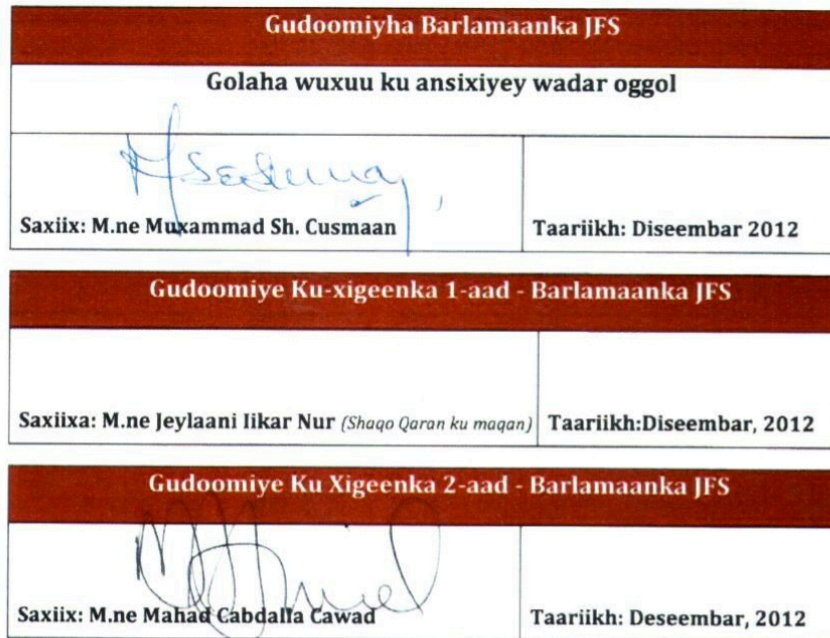 Gudoomiyha Barlamaanka JFS
Golaha wuxuu ku ansixiyey wadar oggol
Saxiix: M.ne Muxammad Sh. Cusmaan
Taariikh: Diseembar 2012
Gudoomiye Ku-xigeenka 1-aad - Barlamaanka JFS
Saxiixa: M.ne Jeylaani Iikar Nur (Shaqo Qaran ku maqan)
Taariikh:Diseembar, 2012
Gudoomiye Ku Xigeenka 2-aad - Barlamaanka JFS
Saxiix: M.ne Mahad Cabdalla Cawad
Taariikh: Deseembar, 2012